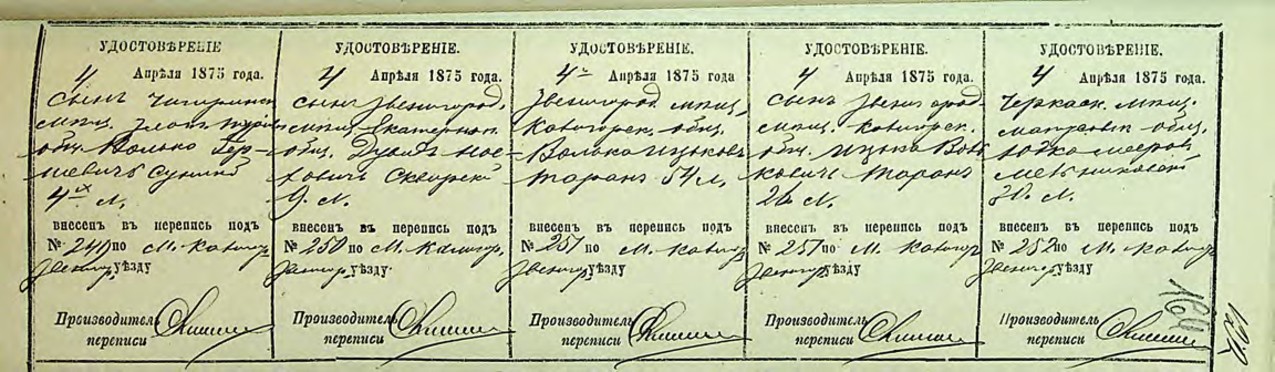 УДОСТОВѢРЕНІЕ
4 Апрѣля 1875 года.
сынъ Чигиринск.
мѣщ.
общ. Волько Гер-
шевичъ
4 л.
внесенъ въ перепись подъ
№ 249 по М. Калигор.
Звенигор. уѣзду
Производитель
переписи
УДОСТОВѢРЕНІЕ.
4 Апрѣля 1875 года.
сынъ Звенигород.
мѣщ. Екатериноп.
общ. Дувидъ Мос-
ковичъ Сквирскій
9 л.
внесенъ въ перепись подъ
№ 250 по М. Калигор.
Звенигор. уѣзду
Производитель
переписи
УДОСТОВѢРЕНІЕ.
4 Апрѣля 1875 года
Звенигород. мѣщ.
Калигорск. общ.
Волько Ицьковъ
Таранъ 54 л.
внесенъ въ перепись подъ
№ 251 по М. Калигор.
Звенигор. уѣзду
Производитель
переписи
УДОСТОВѢРЕНІЕ.
4 Апрѣля 1875 года.
сынъ Звенигород-
мѣщ. Калигорск.
общ. Ицько Воль
ковичъ Таранъ
26 л.
внесенъ въ перепись подъ
№ 251 по М. Калигор.
Звенигор. уѣзду
Производитель
переписи
УДОСТОВѢРЕНІЕ.
4 Апрѣля 1875 года.
Черкаск. мѣщ.
общ.
Юдко Мееров.
Мельниковскій
30 л.
внесенъ въ перепись подъ
№ 252 по М. Калигор.
Звенигор. уѣзду
Производитель
переписи
164